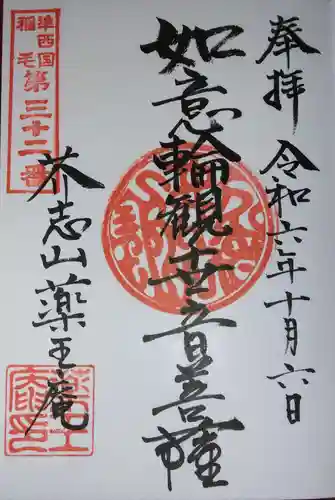 奉拝 令和六年十月六日
如意輪観世音菩薩
準西国
稲毛
第三十二番
芥志山薬王庵